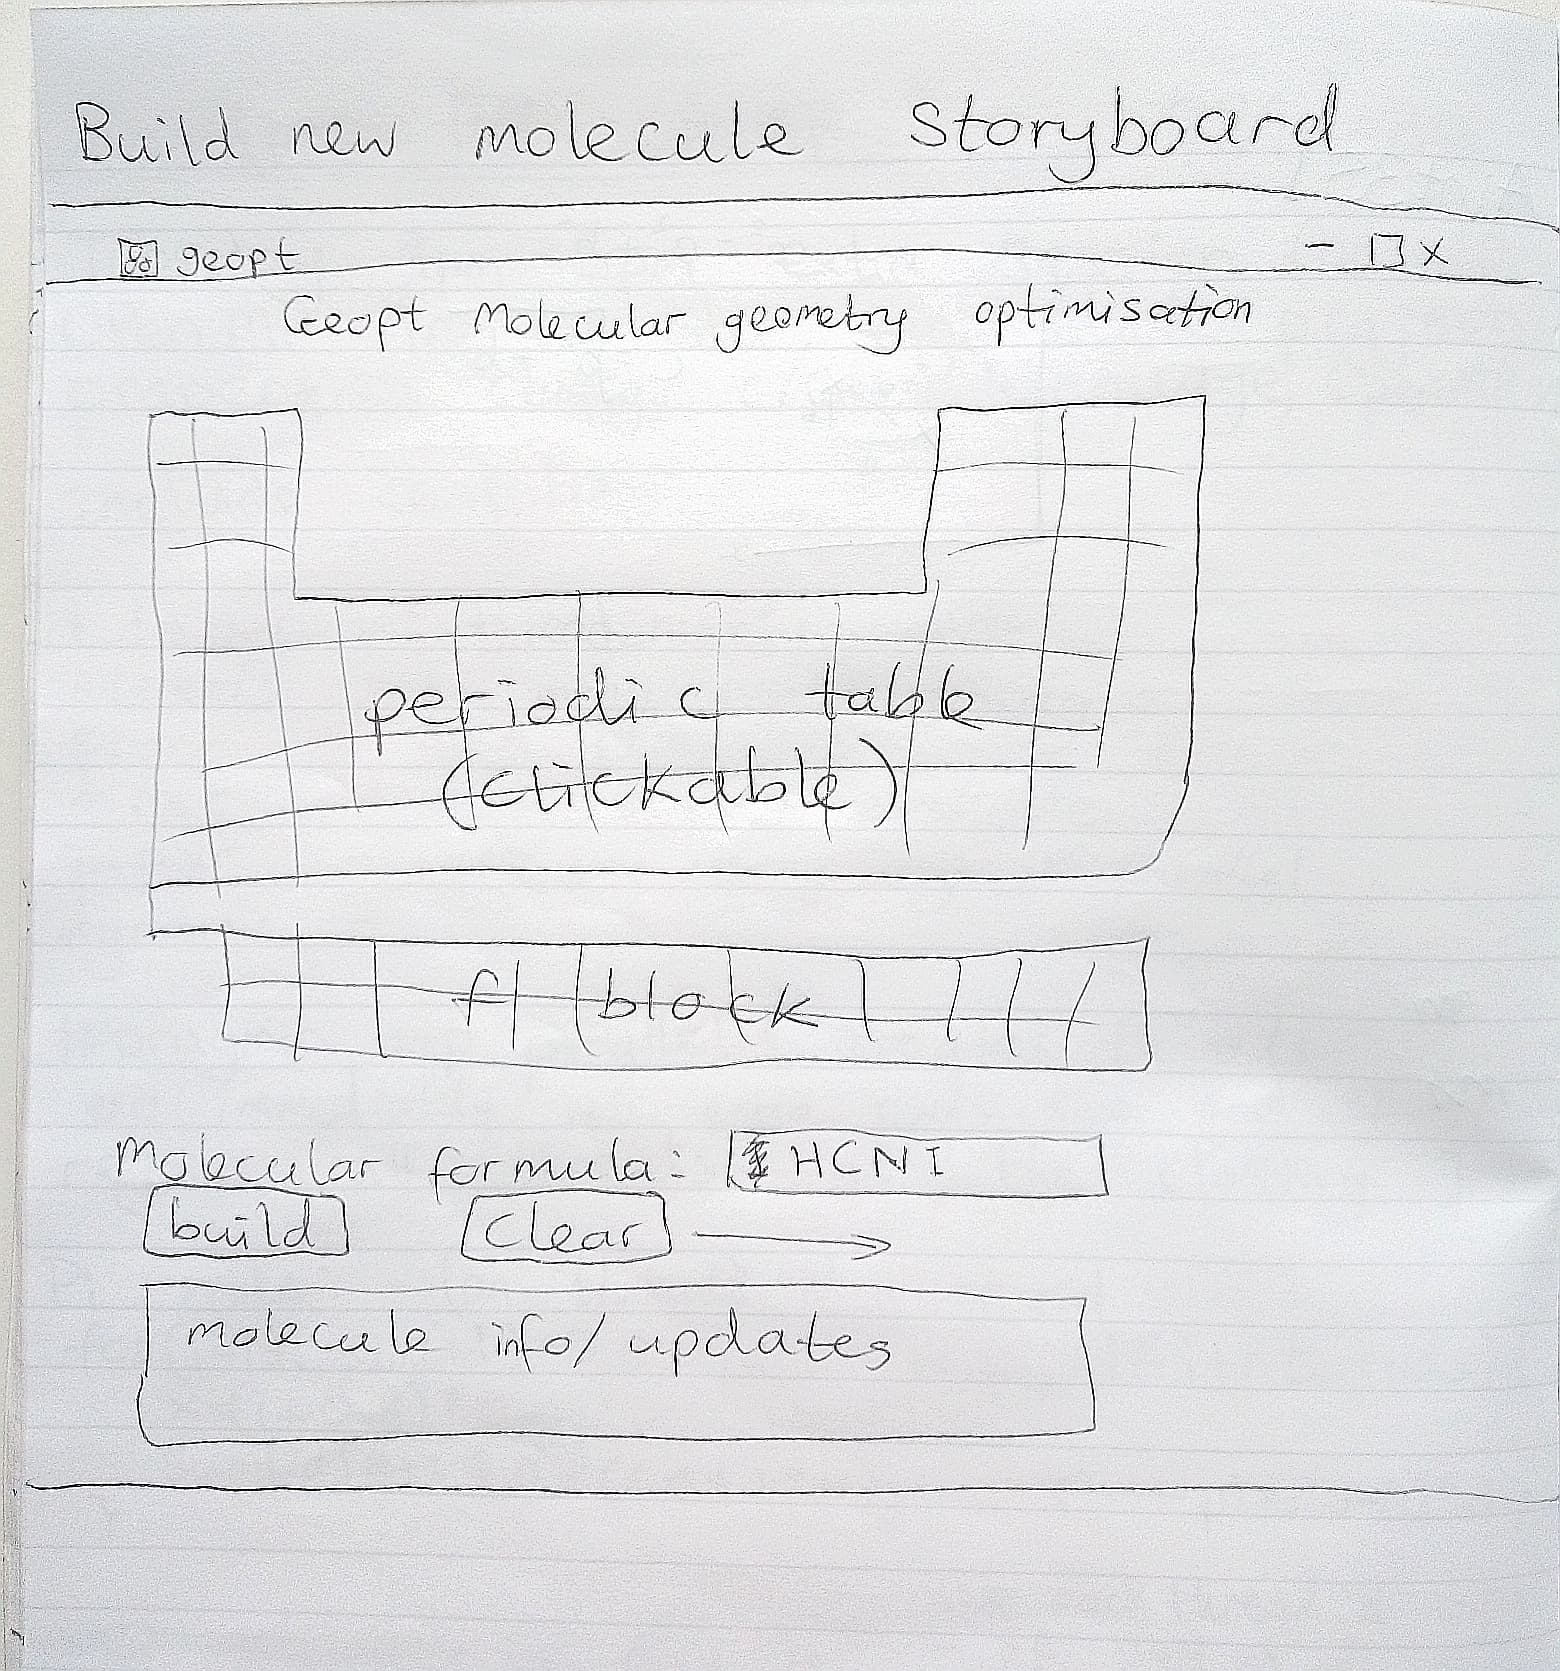 Build new molecule Storyboard
geopt - □ x
Geopt Molecular geometry optimisation
periodic table
(clickable)
f block
Molecular formula: HCNI
build clear →
molecule info/updates